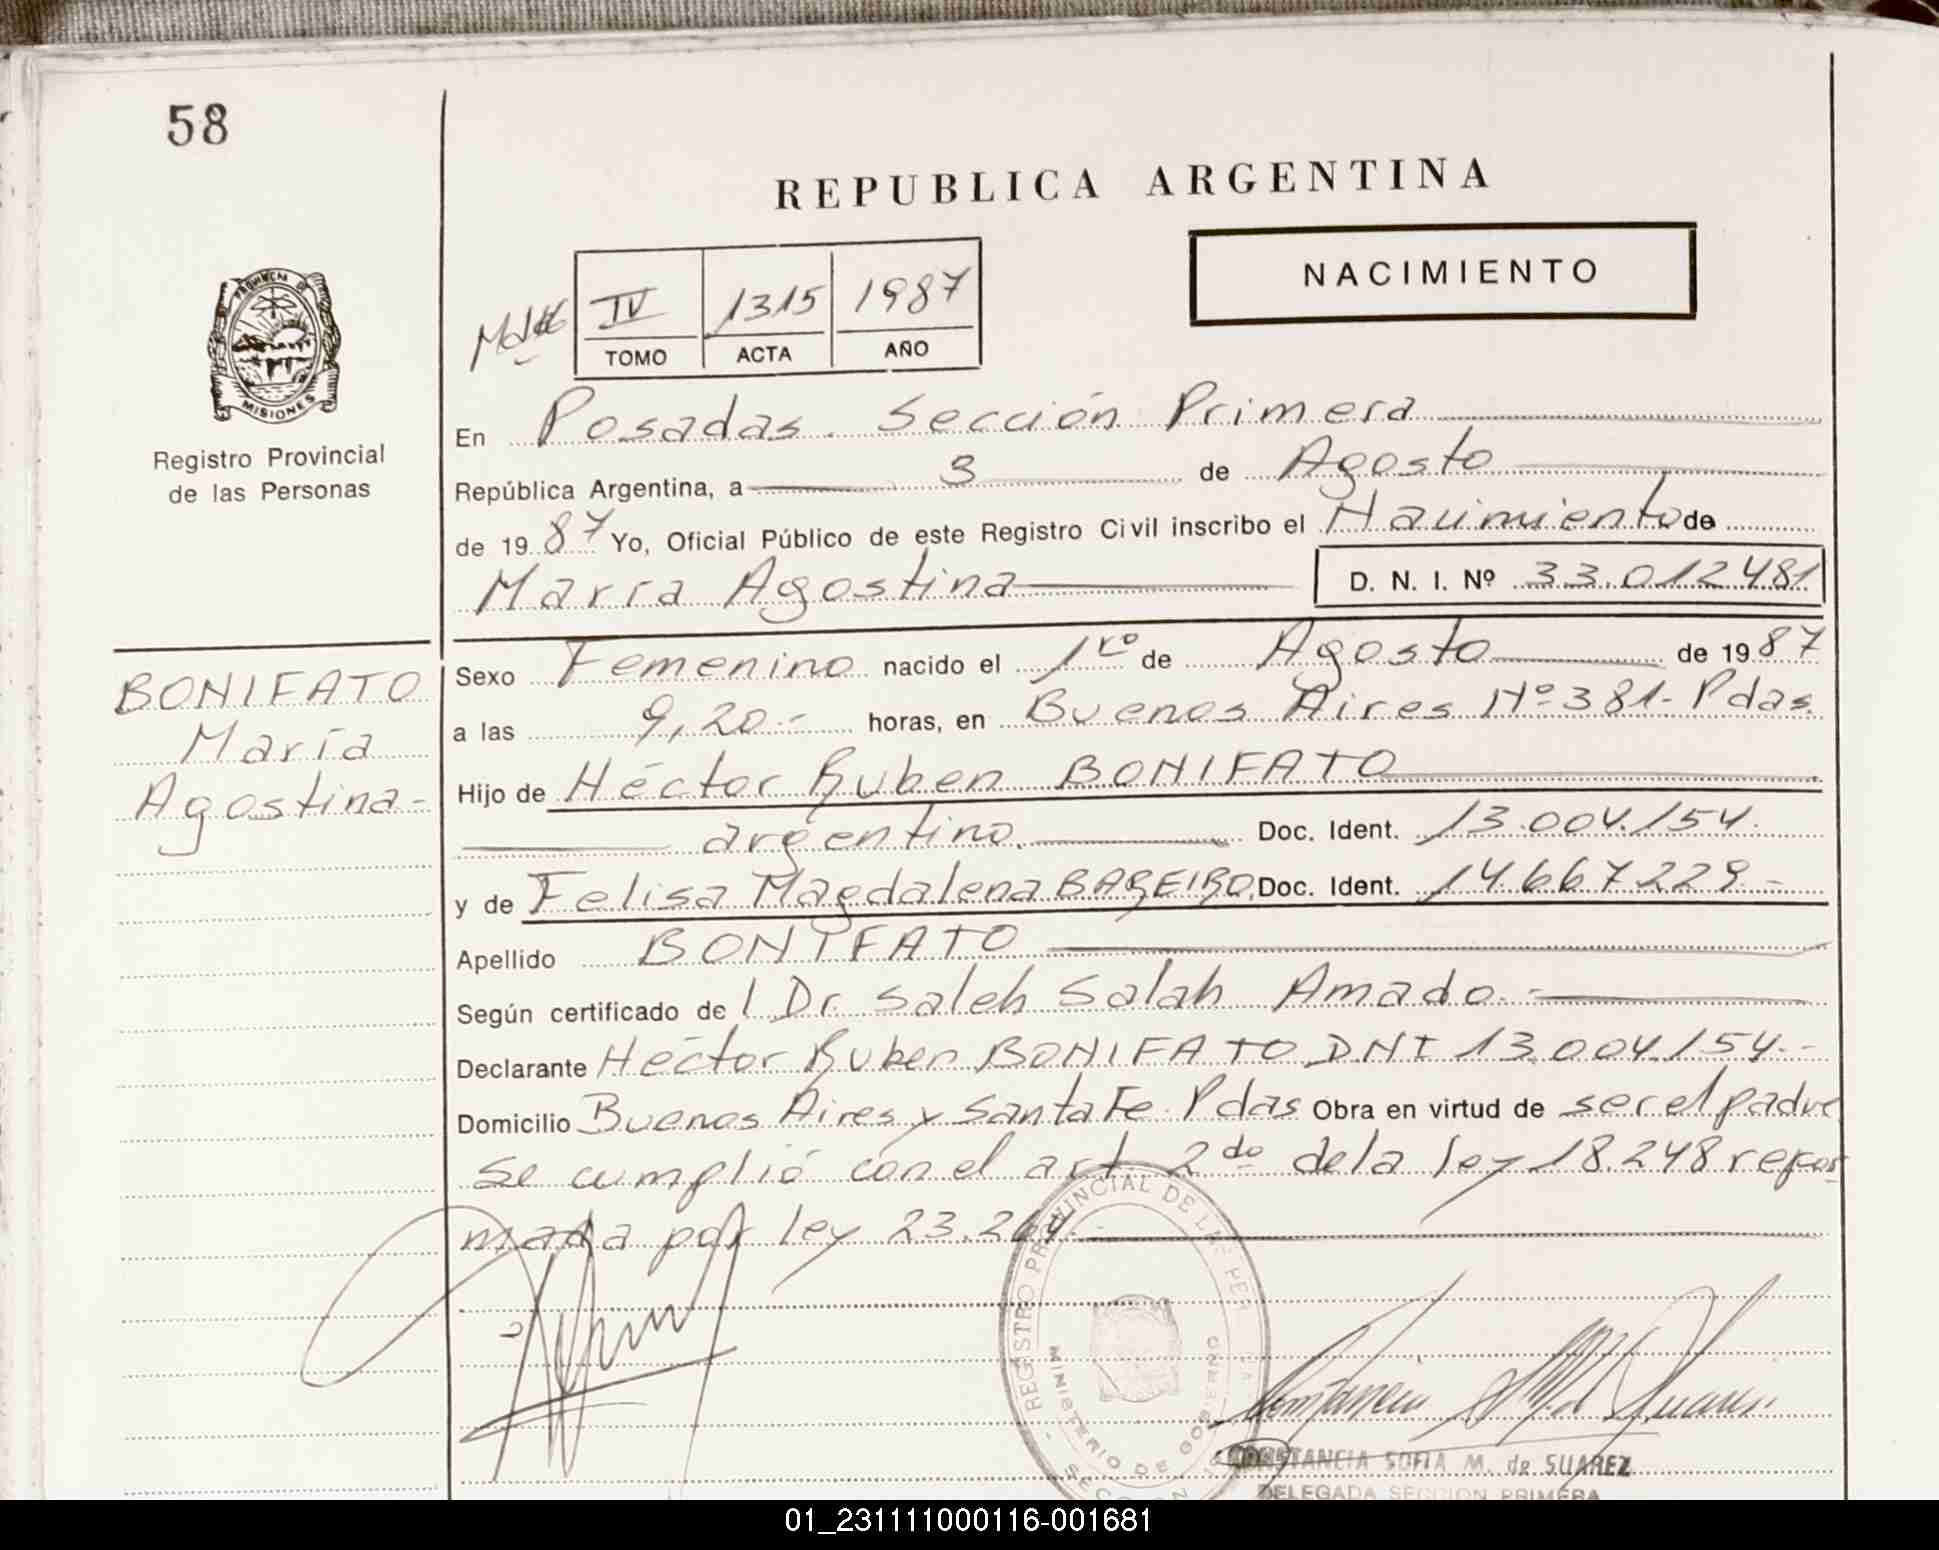 58
REPUBLICA ARGENTINA
NACIMIENTO
IV 1315 1987
TOMO ACTA AÑO
PROVINCIA DE
MISIONES
Registro Provincial
de las Personas
En Posadas. Sección Primera
República Argentina, a 3 de Agosto
de 1987 Yo, Oficial Público de este Registro Civil inscribo el Nacimiento de
María Agostina D. N. I. Nº 33.012481
BONIFATO
María
Agostina-
Sexo Femenino nacido el 1ro de Agosto de 1987
a las 9,20.- horas, en Buenos Aires Nº 381- Pdas.
Hijo de Héctor Ruben BONIFATO
argentino. Doc. Ident. 13.004.154.
y de Felisa Magdalena BAREIRO, Doc. Ident. 14.667.229.-
Apellido BONIFATO
Según certificado de l Dr. Saleh Salah Amado.-
Declarante Héctor Ruben BONIFATO DNI 13.004.154.-
Domicilio Buenos Aires y Santa Fe. Pdas Obra en virtud de ser el padre
se cumplió con el art. 2do de la ley 18.248 refor
mada por ley 23.264.-
REGISTRO PROVINCIAL DE LAS PER
MINISTERIO DE GOBIERNO
CONSTANCIA SOFIA M. de SUAREZ
DELEGADA SECCION PRIMERA
01_231111000116-001681